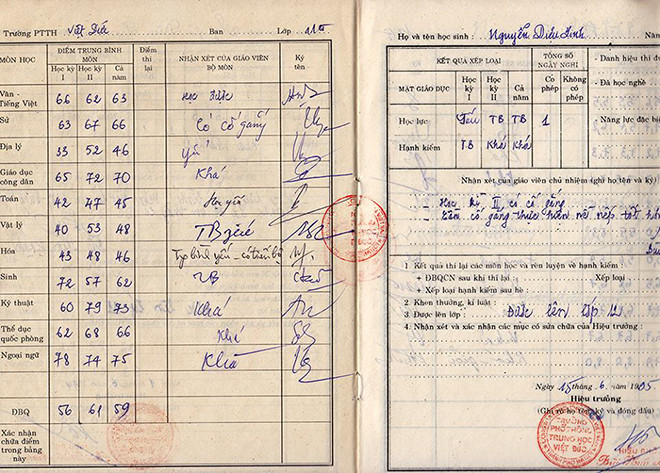 Trường PTTH Việt Đức Ban Lớp 11
MÔN HỌC ĐIỂM TRUNG BÌNH MÔN Điểm thi lại NHẬN XÉT CỦA GIÁO VIÊN BỘ MÔN Ký tên
Học kỳ I Học kỳ II Cả năm
Văn - Tiếng Việt 66 62 63 Học được
Sử 63 67 66 Có cố gắng
Địa lý 33 52 46 yếu
Giáo dục công dân 65 72 70 Khá
Toán 42 47 45 Học yếu
Vật lý 40 53 48 TB yếu
Hóa 43 48 46
Sinh 72 57 62 TB
Kỹ thuật 60 79 73 Khá
Thể dục quốc phòng 62 68 66 Khá
Ngoại ngữ 78 74 75 Khá
ĐBQ 56 61 59
Xác nhận chữa điểm trong bảng này
Họ và tên học sinh: Nguyễn Diệu Linh Nă
KẾT QUẢ XẾP LOẠI TỔNG SỐ NGÀY NGHỈ
MẶT GIÁO DỤC Học kỳ I Học kỳ II Cả năm Có phép Không có phép
Học lực Yếu TB TB 1
Hạnh kiểm TB Khá Khá
- Danh hiệu thi đu
- Đã học nghề
- Năng lực đặc biệ
Nhận xét của giáo viên chủ nhiệm (ghi họ tên và ký)
- Học kỳ II có cố gắng
- Cần cố gắng thực hiện nề nếp tốt
1. Kết quả thi lại các môn học và rèn luyện về hạnh kiểm:
+ ĐBQCN sau khi thi lại: Xếp loại
+ Xếp loại hạnh kiểm sau hè:
2. Khen thưởng, kỉ luật:
3. Được lên lớp: Được lên lớp 12
4. Nhận xét và xác nhận các mục có sửa chữa của Hiệu trưởng:
Ngày 15 tháng 6 năm 1995
Hiệu trưởng
(Ghi rõ họ tên, ký và đóng dấu)
TRƯỜNG
PHỔ THÔNG
TRUNG HỌC
VIỆT ĐỨC